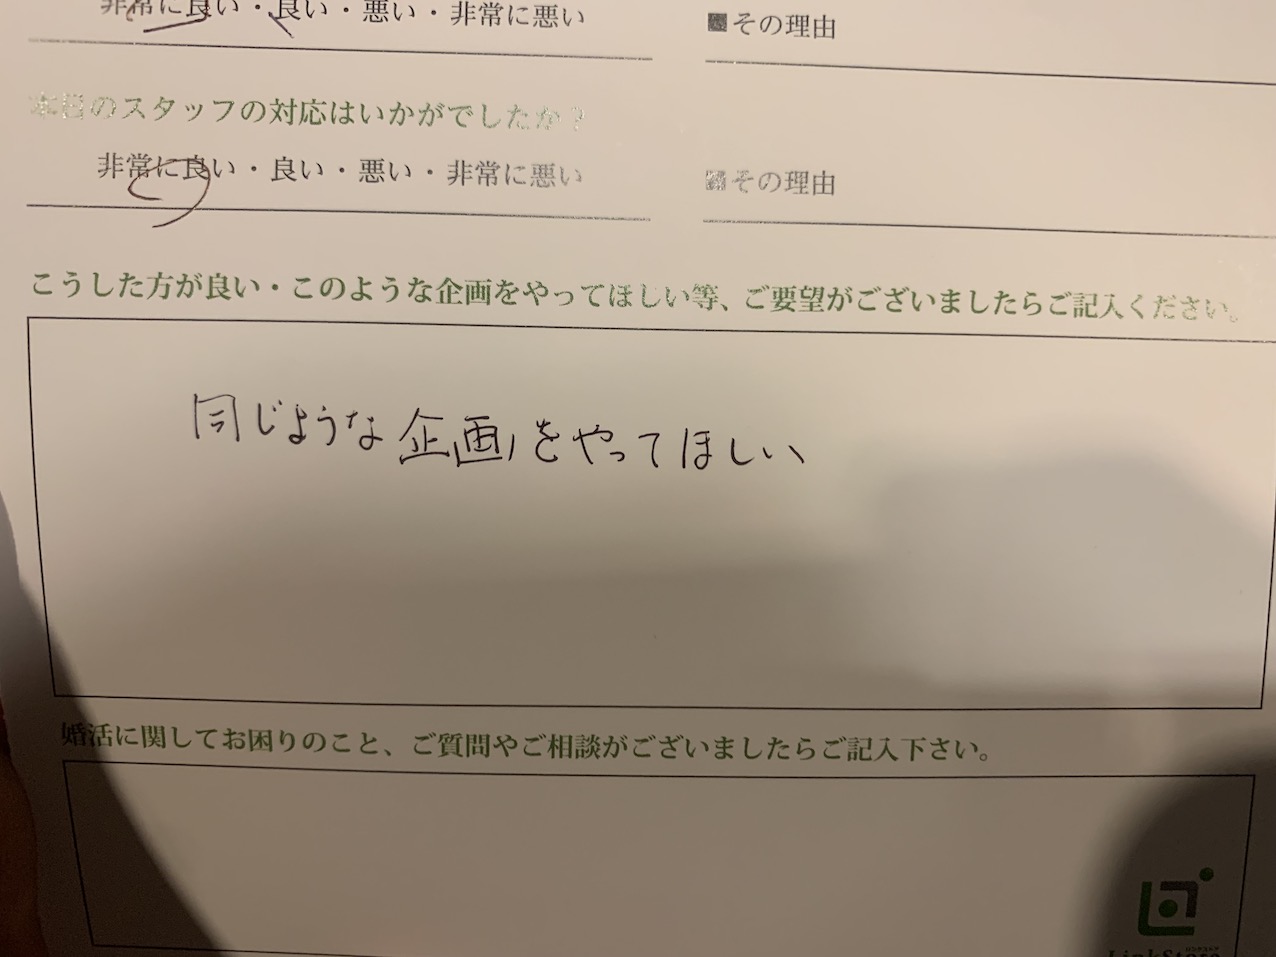 非常に良い・良い・悪い・非常に悪い
■その理由
本日のスタッフの対応はいかがでしたか？
非常に良い・良い・悪い・非常に悪い
■その理由
こうした方が良い・このような企画をやってほしい等、ご要望がございましたらご記入ください。
同じような企画をやってほしい
婚活に関してお困りのこと、ご質問やご相談がございましたらご記入下さい。
リンクストア
LinkStore